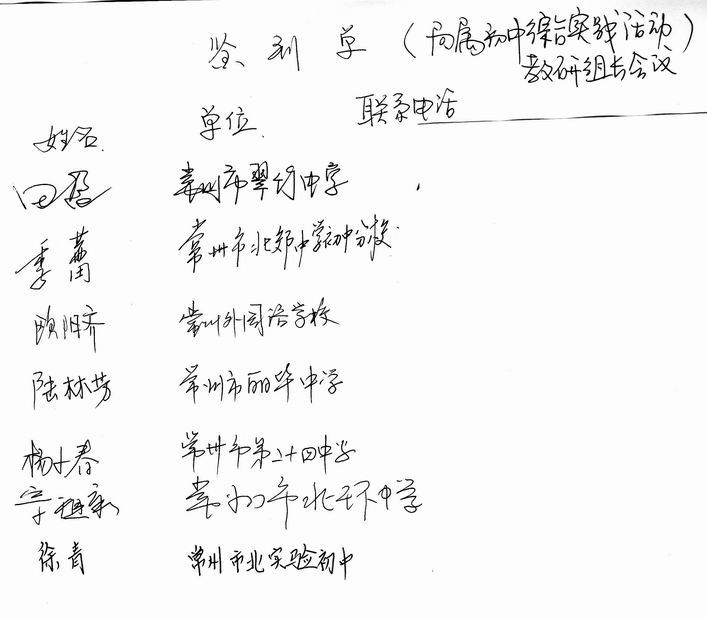 签到单（局属初中综合实践活动
教研组长会议）
姓名 单位 联系电话
田 常州市翠竹中学
季蕾 常州市北郊中学初中分校
欧阳齐 常州外国语学校
陆林芳 常州市丽华中学
杨小春 常州市第二十四中学
常州市北环中学
徐青 常州市北实验初中